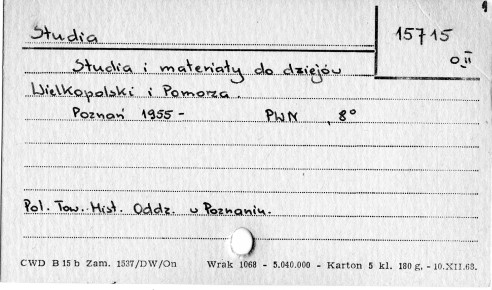 9
Studia
15715
O.II
Studia i materiały do dziejów
Wielkopolski i Pomorza.
Poznań 1955 - PWN , 8°
Pol. Tow. Hist. Oddz. w Poznaniu.
CWD B 15 b Zam. 1537/DW/On Wrak 1068 - 5.040.000 - Karton 5 kl. 180 g. - 10.XII.68.